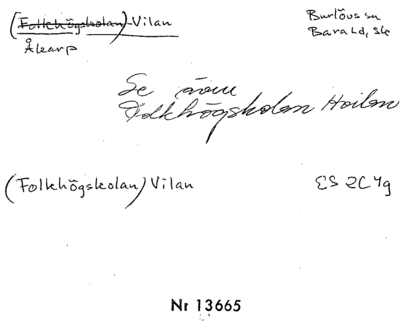 (Folkhögskolan) Vilan
Åkarp
Burlövs sn
Bara hd, Sk
Se även
Folkhögskolan Hvilan
(Folkhögskolan) Vilan
ES 2C 4g
Nr 13665